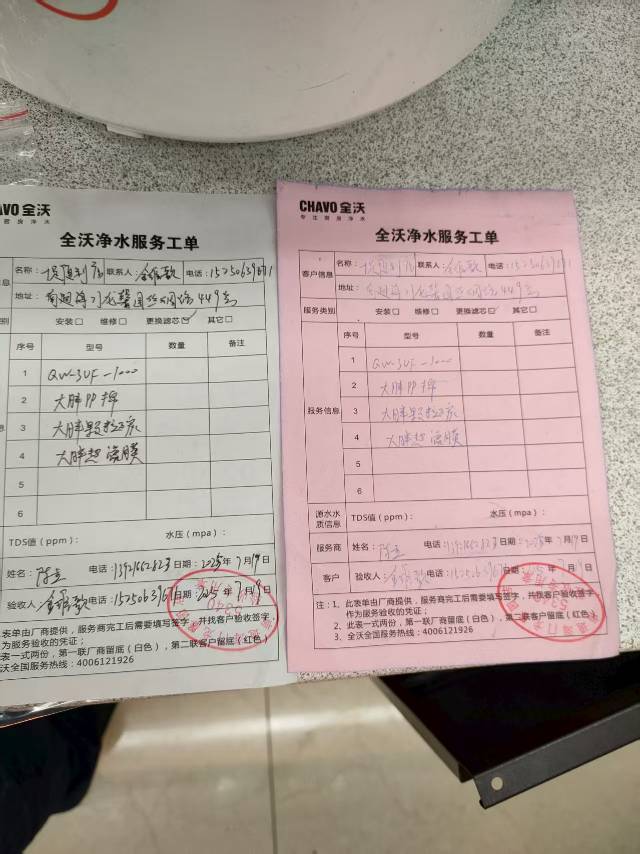 AVO全沃
全沃净水服务工单
名称： 联系人 电话：
地址： 449号
别 安装□ 维修□ 更换滤芯☑ 其它□
序号 型号 数量 备注
1 QW-3UF-1000
2 大胖PP棉
3 大胖颗粒炭
4 大胖超滤膜
5
6
TDS值（ppm）： 水压（mpa）：
姓名： 电话： 日期：2025年7月19日
验收人： 日期：2025年7月19日
表单由厂商提供，服务商完工后需要填写签字，并找客户验收签字，
为服务验收的凭证；
表一式两份，第一联厂商留底（白色），第二联客户留底（红色）
沃全国服务热线：4006121926
CHAVO全沃
专注厨房净水
全沃净水服务工单
客户信息 名称： 联系人： 电话：
地址： 449号
服务类别 安装□ 维修□ 更换滤芯☑ 其它□
服务信息 序号 型号 数量 备注
1 QW-3UF-1000
2 大胖PP棉
3 大胖颗粒炭
4 大胖超滤膜
5
6
源水水质信息 TDS值（ppm）： 水压（mpa）：
服务商 姓名： 电话： 日期：2025年7月19日
客户 验收人： 日期：2025年7月19日
注：1、此表单由厂商提供，服务商完工后需要填写签字，并找客户验收签字
作为服务验收的凭证；
2、此表一式两份，第一联厂商留底（白色），第二联客户留底（红色）
3、全沃全国服务热线：4006121926